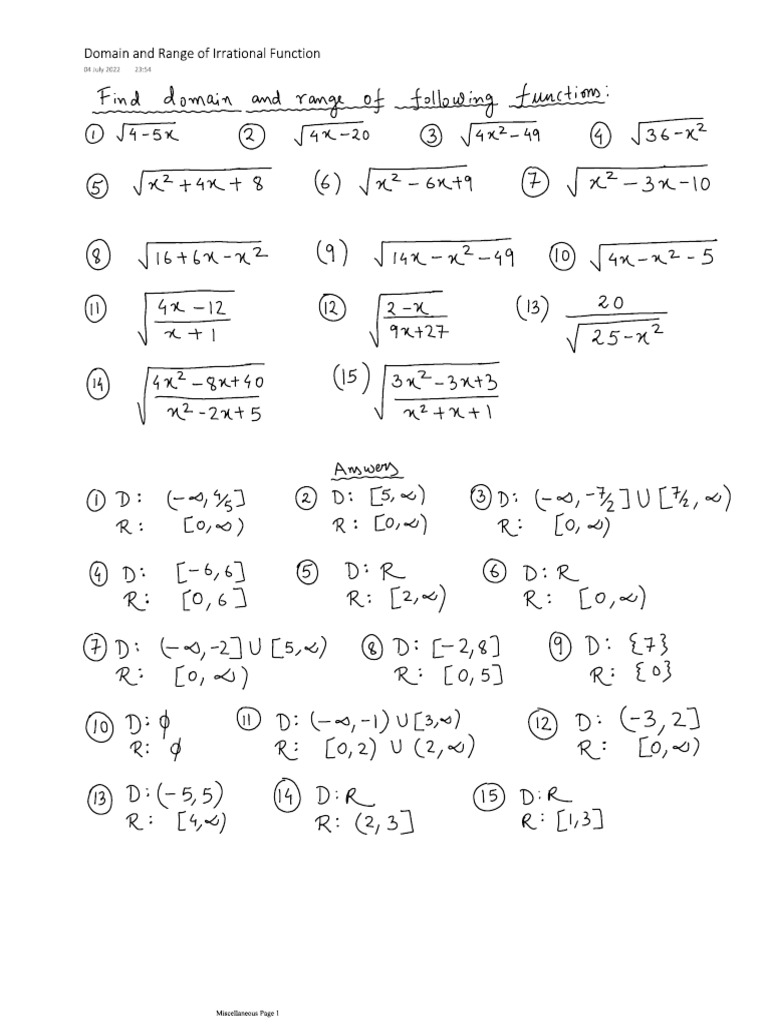 Domain and Range of Irrational Function
04 July 2022 23:54
Find domain and range of following functions:
① √(4-5x) ② √(4x-20) ③ √(4x²-49) ④ √(36-x²)
⑤ √(x²+4x+8) (6) √(x²-6x+9) ⑦ √(x²-3x-10)
⑧ √(16+6x-x²) (9) √(14x-x²-49) ⑩ √(4x-x²-5)
⑪ √((4x-12)/(x+1)) ⑫ √((2-x)/(9x+27)) (13) 20/√(25-x²)
⑭ √((4x²-8x+40)/(x²-2x+5)) (15) √((3x²-3x+3)/(x²+x+1))
Answers
① D: (-∞, 4/5] ② D: [5,∞) ③ D: (-∞, -7/2] ∪ [7/2, ∞)
R: [0,∞) R: [0,∞) R: [0,∞)
④ D: [-6,6] ⑤ D: R ⑥ D: R
R: [0,6] R: [2,∞) R: [0,∞)
⑦ D: (-∞,-2] ∪ [5,∞) ⑧ D: [-2,8] ⑨ D: {7}
R: [0,∞) R: [0,5] R: {0}
⑩ D: φ ⑪ D: (-∞,-1) ∪ [3,∞) ⑫ D: (-3, 2]
R: φ R: [0,2) ∪ (2,∞) R: [0,∞)
⑬ D: (-5,5) ⑭ D: R ⑮ D: R
R: [4,∞) R: (2, 3] R: [1,3]
Miscellaneous Page 1